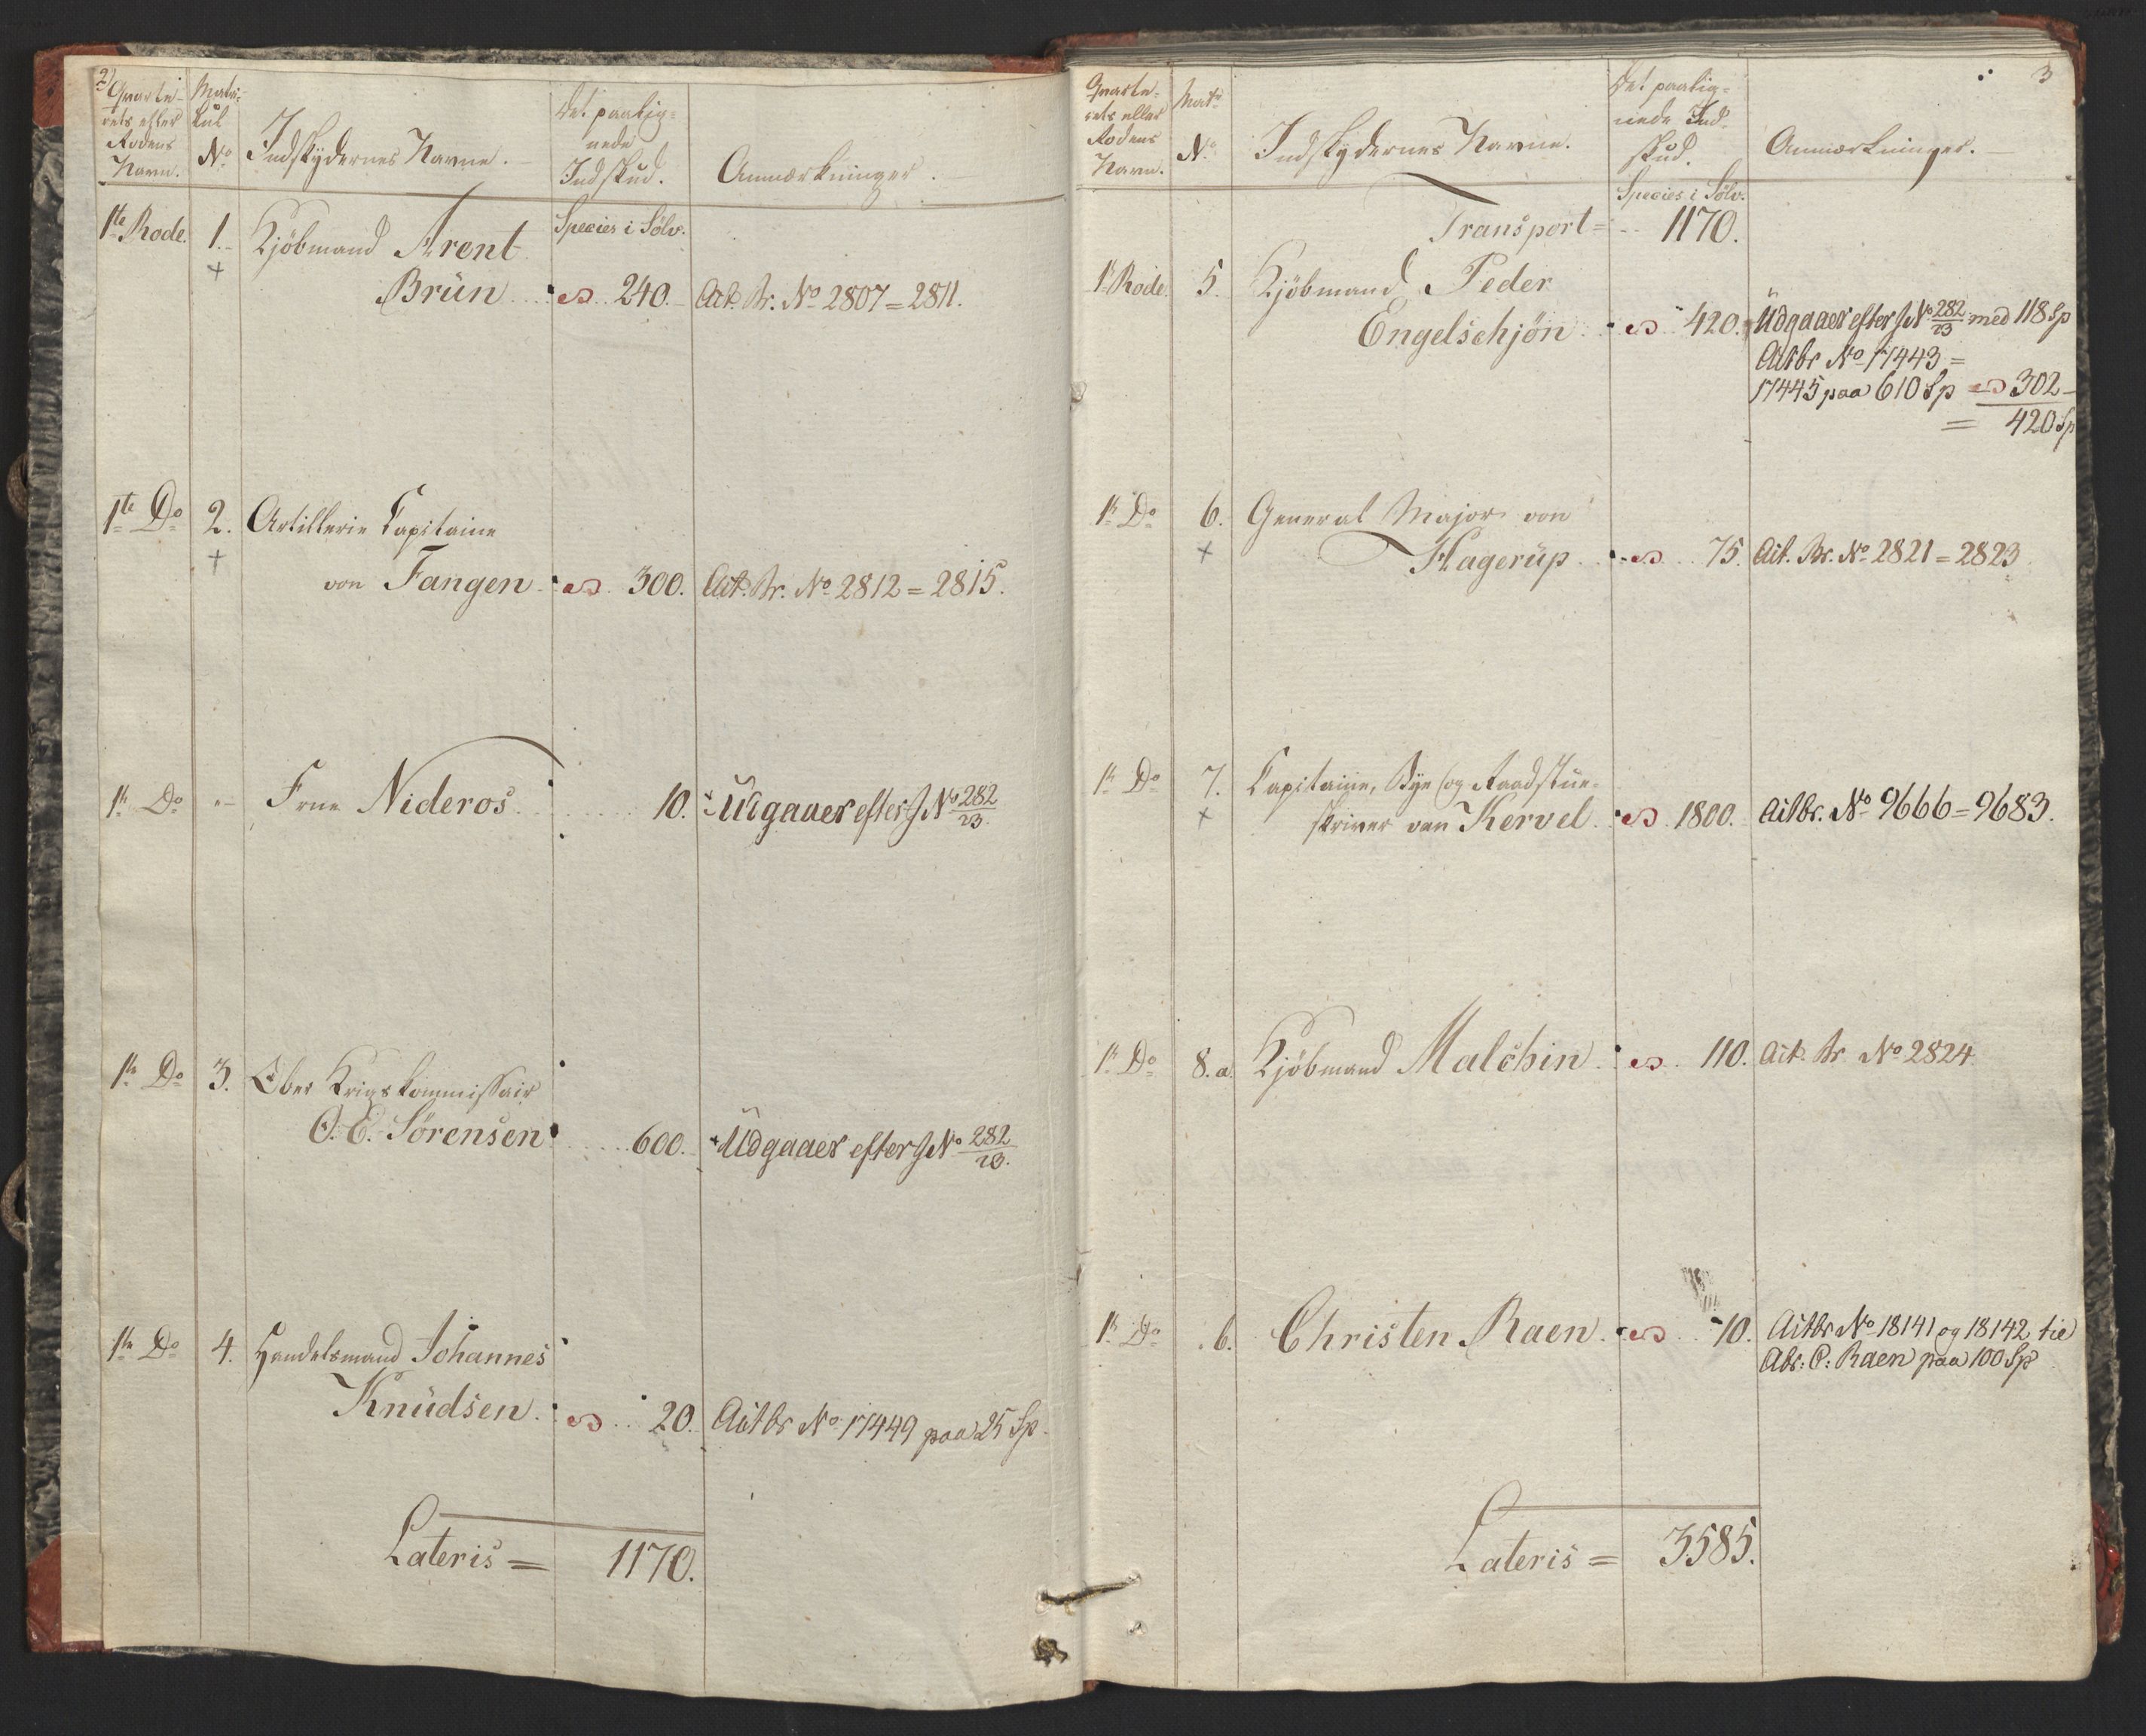 2)
Qvarte-
rets eller
Rodens
Navn.
Matri-
kul
No
Indskydernes Navne.
Det paalig-
nede
Indskud.
Anmærkninger.
Species i Sølv.
1te Rode. 1. Kjöbmand Arent
+
Brün 240. Act. Br. No 2807 = 2811.
1te Do 2. Artillerie Capitaine
+
von Fangen 300. Act. Br. No 2812 = 2815.
1te Do " Frue Nideros 10. Udgaaer efter J No 282/23.
1te Do 3. Ober Krigskommissair
O. E. Sörensen 600. Udgaaer efter J No 282/23.
1te Do 4. Handelsmand Johannes
Knüdsen 20. Actbr No 17449 paa 25 Sp.
Lateris = 1170.
3
Qvarte-
rets eller
Rodens
Navn.
Matr
No
Indskydernes Navne.
Det paalig-
nede Ind-
skud.
Anmærkninger.
Species i Sölv.
Transport = 1170.
1te Rode 5. Kjöbmand Peder
Engelschjön 420. Udgaaer efter J No 282/23 med 118 Sp
Actbr No 17443 =
17445 paa 610 Sp 302
= 420 Sp
1te Do 6. General Major von
+
Hagerüp 75. Act. Br. No 2821 = 2823
1te Do 7. Capitaine, Bye og Raadstue-
+
skriver von Kervel 1800. Actbr. No 9666 = 9683.
1te Do 8. a. Kjöbmand Malchin 110. Act. Br. No 2824
1te Do b. Christen Raen 10. Actbr No 18141 og 18142 til
Abr: C: Raen paa 100 Sp
Lateris = 3585.